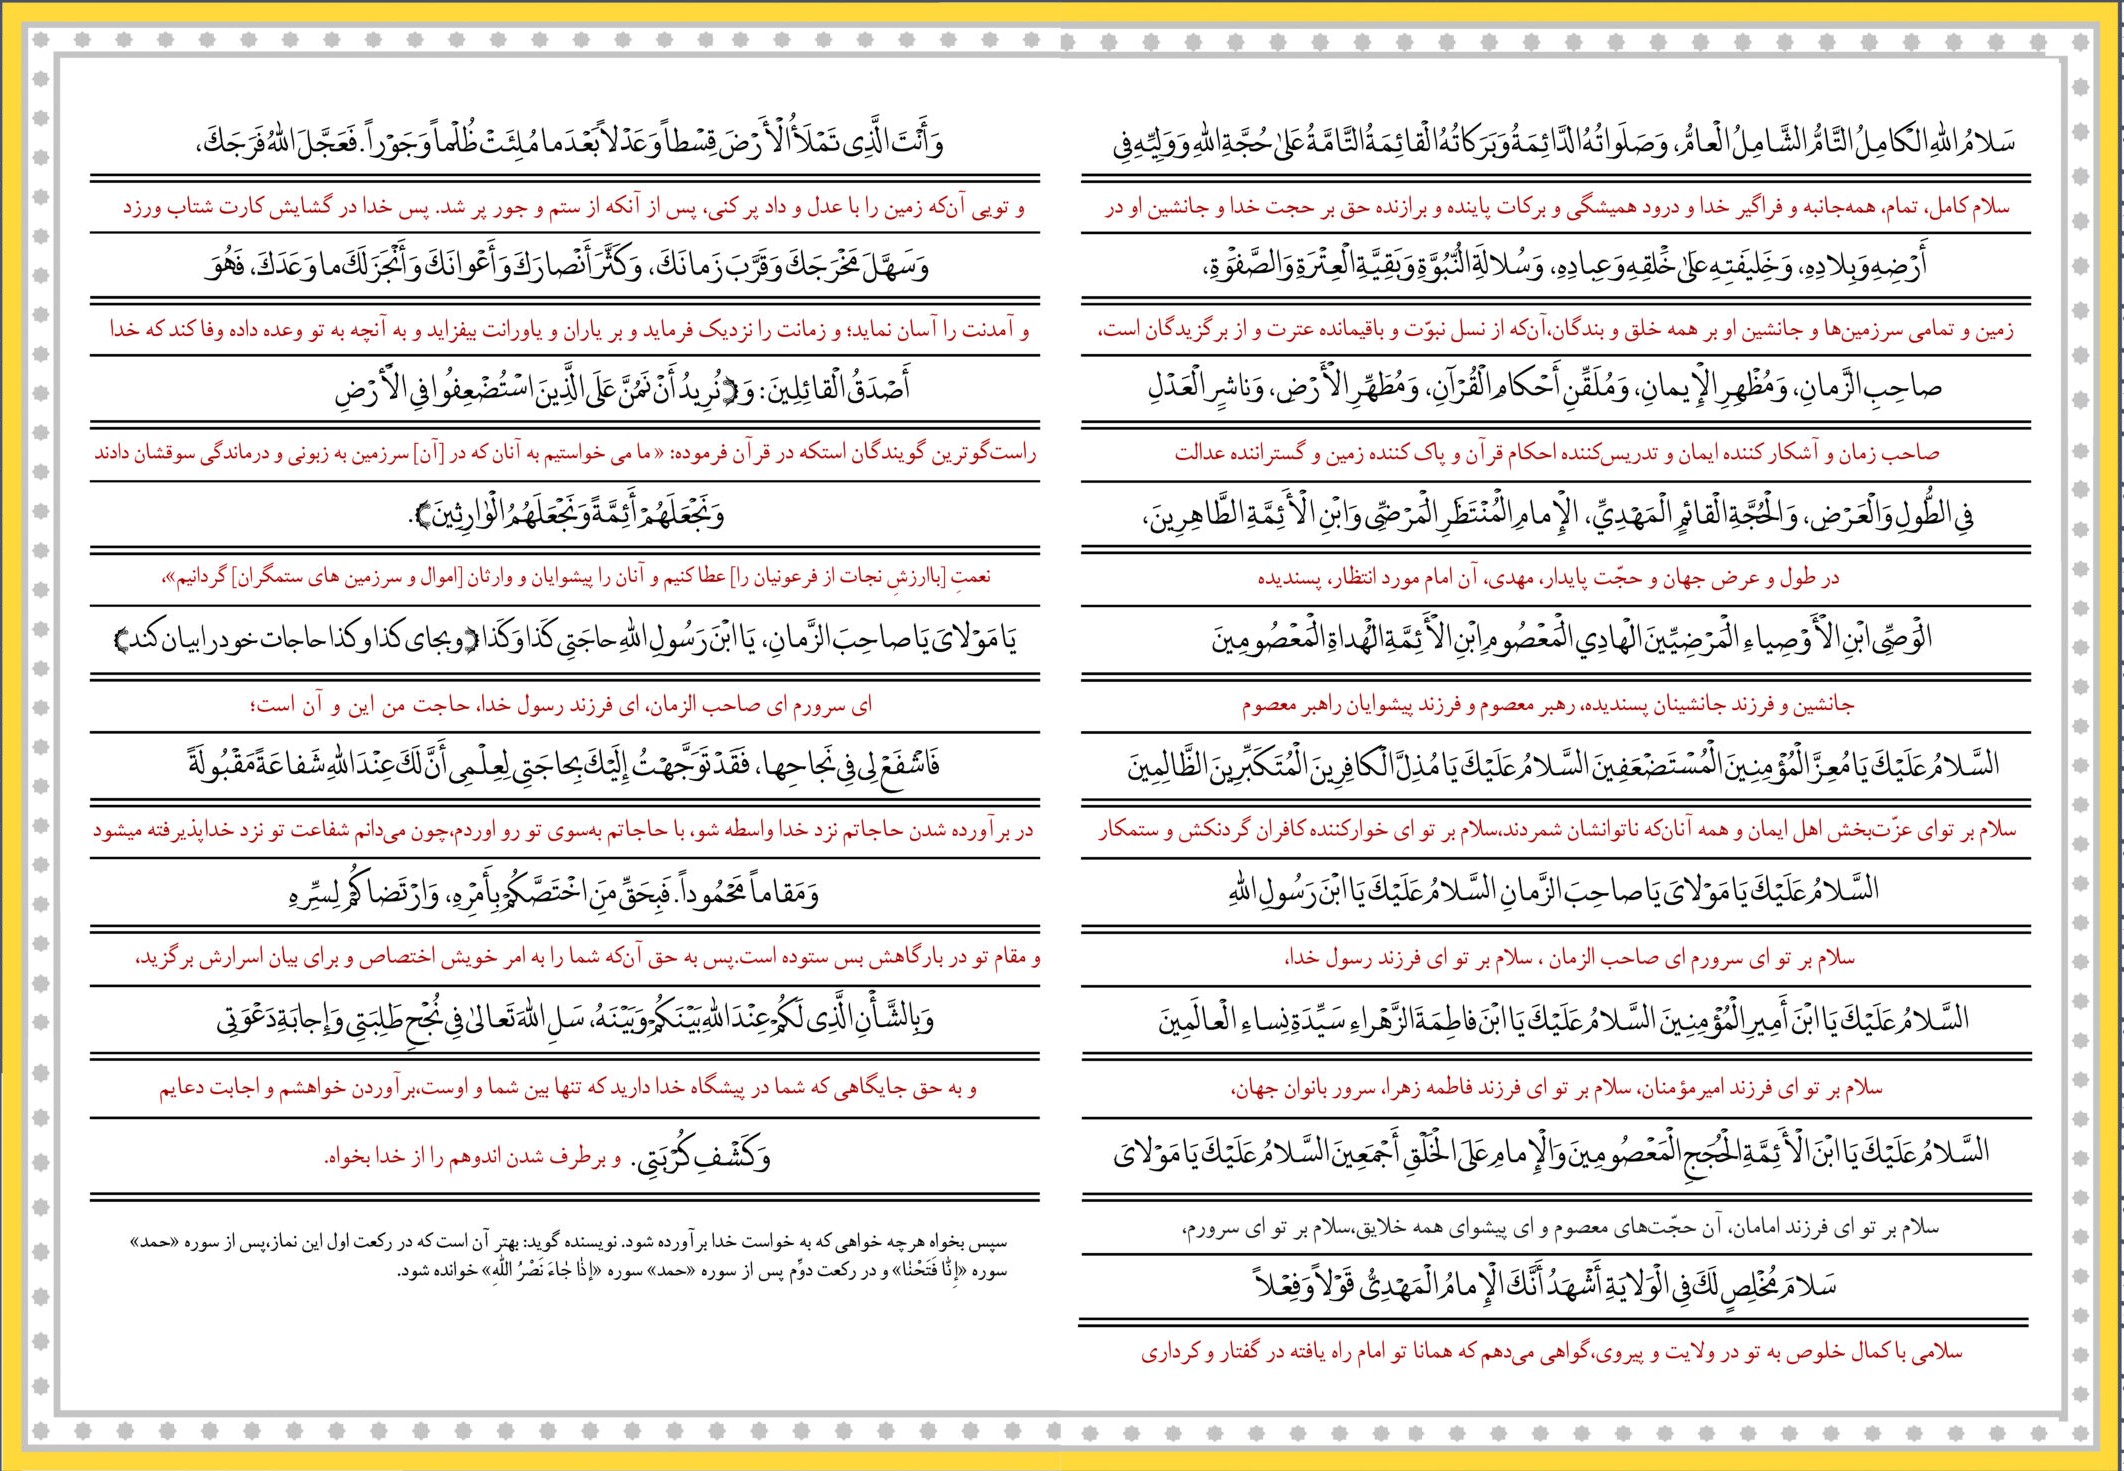 سَلامُ اللهِ الْكامِلُ التَّامُّ الشَّامِلُ الْعامُّ، وَصَلَواتُهُ الدَّائِمَةُ وَبَرَكاتُهُ الْقائِمَةُ التَّامَّةُ عَلىٰ حُجَّةِ اللهِ وَوَلِيِّهِ فِي
سلام کامل، تمام، همه‌جانبه و فراگیر خدا و درود همیشگی و برکات پاینده و برازنده حق بر حجت خدا و جانشین او در
أَرْضِهِ وَبِلادِهِ، وَخَلِيفَتِهِ عَلىٰ خَلْقِهِ وَعِبادِهِ، وَسُلالَةِ النُّبُوَّةِ وَبَقِيَّةِ الْعِتْرَةِ وَالصَّفْوَةِ،
زمین و تمامی سرزمین‌ها و جانشین او بر همه خلق و بندگان،آن‌که از نسل نبوّت و باقیمانده عترت و از برگزیدگان است،
صاحِبِ الزَّمانِ، وَمُظْهِرِ الْإِيمانِ، وَمُلَقِّنِ أَحْكامِ الْقُرْآنِ، وَمُطَهِّرِ الْأَرْضِ، وَناشِرِ الْعَدْلِ
صاحب زمان و آشکار کننده ایمان و تدریس‌کننده احکام قرآن و پاک کننده زمین و گستراننده عدالت
فِي الطُّولِ وَالْعَرْضِ، وَالْحُجَّةِ الْقائِمِ الْمَهْدِيِّ، الْإِمامِ الْمُنْتَظَرِ الْمَرْضِّي وَابْنِ الْأَئِمَّةِ الطَّاهِرِينَ،
در طول و عرض جهان و حجّت پایدار، مهدی، آن امام مورد انتظار، پسندیده
الْوَصِّيِ ابْنِ الْأَوْصِياءِ الْمَرْضِيِّينَ الْهادِي الْمَعْصُومِ ابْنِ الْأَئِمَّةِ الْهُداةِ الْمَعْصُومِينَ
جانشین و فرزند جانشینان پسندیده، رهبر معصوم و فرزند پیشوایان راهبر معصوم
السَّلامُ عَلَيْكَ يَا مُعِزَّ الْمُؤْمِنِينَ الْمُسْتَضْعَفِينَ السَّلامُ عَلَيْكَ يَا مُذِلَّ الْكافِرِينَ الْمُتَكَبِّرِينَ الظَّالِمِينَ
سلام بر توای عزّت‌بخش اهل ایمان و همه آنان‌که ناتوانشان شمردند،سلام بر تو ای خوارکننده کافران گردنکش و ستمکار
السَّلامُ عَلَيْكَ يَا مَوْلايَ يَا صاحِبَ الزَّمانِ السَّلامُ عَلَيْكَ يَا ابْنَ رَسُولِ اللهِ
سلام بر تو ای سرورم ای صاحب الزمان ، سلام بر تو ای فرزند رسول خدا،
السَّلامُ عَلَيْكَ يَا ابْنَ أَمِيرِ الْمُؤْمِنِينَ السَّلامُ عَلَيْكَ يَا ابْنَ فاطِمَةَ الزَّهْراءِ سَيِّدَةِ نِساءِ الْعالَمِينَ
سلام بر تو ای فرزند امیرمؤمنان، سلام بر تو ای فرزند فاطمه زهرا، سرور بانوان جهان،
السَّلامُ عَلَيْكَ يَا ابْنَ الْأَئِمَّةِ الْحُجَجِ الْمَعْصُومِينَ وَالْإِمامِ عَلَى الْخَلْقِ أَجْمَعِينَ السَّلامُ عَلَيْكَ يَا مَوْلايَ
سلام بر تو ای فرزند امامان، آن حجّت‌های معصوم و ای پیشوای همه خلایق،سلام بر تو ای سرورم،
سَلامَ مُخْلِصٍ لَكَ فِي الْوَلايَةِ أَشْهَدُ أَنَّكَ الْإِمامُ الْمَهْدِيُّ قَوْلاً وَفِعْلاً
سلامی با کمال خلوص به تو در ولایت و پیروی،گواهی می‌دهم که همانا تو امام راه یافته در گفتار و کرداری
وَأَنْتَ الَّذِي تَمْلَأُ الْأَرْضَ قِسْطاً وَعَدْلاً بَعْدَ ما مُلِئَتْ ظُلْماً وَجَوْراً. فَعَجَّلَ اللهُ فَرَجَكَ،
و تویی آن‌که زمین را با عدل و داد پر کنی، پس از آنکه از ستم و جور پر شد. پس خدا در گشایش کارت شتاب ورزد
وَسَهَّلَ مَخْرَجَكَ وَقَرَّبَ زَمانَكَ، وَكَثَّرَ أَنْصارَكَ وَأَعْوانَكَ وَأَنْجَزَ لَكَ ما وَعَدَكَ، فَهُوَ
و آمدنت را آسان نماید؛ و زمانت را نزدیک فرماید و بر یاران و یاورانت بیفزاید و به آنچه به تو وعده داده وفا کند که خدا
أَصْدَقُ الْقائِلِينَ: وَ ﴿نُرِيدُ أَنْ نَمُنَّ عَلَى الَّذِينَ اسْتُضْعِفُوا فِي الْأَرْضِ
راست‌گوترین گویندگان استکه در قرآن فرموده: « ما می خواستیم به آنان که در [آن] سرزمین به زبونی و درماندگی سوقشان دادند
وَنَجْعَلَهُمْ أَئِمَّةً وَنَجْعَلَهُمُ الْوٰارِثِينَ﴾.
نعمتِ [باارزشِ نجات از فرعونیان را] عطا کنیم و آنان را پیشوایان و وارثان [اموال و سرزمین های ستمگران] گردانیم»،
يَا مَوْلايَ يَا صاحِبَ الزَّمانِ، يَا ابْنَ رَسُولِ اللهِ حاجَتِي كَذا وَكَذا ﴿وبجای کذا و کذا حاجات خود را بیان کند﴾
ای سرورم ای صاحب الزمان، ای فرزند رسول خدا، حاجت من این و آن است؛
فَاشْفَعْ لِي فِي نَجاحِها، فَقَدْ تَوَجَّهْتُ إِلَيْكَ بِحاجَتِي لِعِلْمِي أَنَّ لَكَ عِنْدَ اللهِ شَفاعَةً مَقْبُولَةً
در برآورده شدن حاجاتم نزد خدا واسطه شو، با حاجاتم به‌سوی تو رو اوردم،چون می‌دانم شفاعت تو نزد خداپذیرفته میشود
وَمَقاماً مَحْمُوداً. فَبِحَقِّ مَنِ اخْتَصَّكُمْ بِأَمْرِهِ، وَارْتَضاكُمْ لِسِرِّهِ
و مقام تو در بارگاهش بس ستوده است.پس به حق آن‌که شما را به امر خویش اختصاص و برای بیان اسرارش برگزید،
وَبِالشَّأْنِ الَّذِي لَكُمْ عِنْدَ اللهِ بَيْنَكُمْ وَبَيْنَهُ، سَلِ اللهَ تَعالىٰ فِي نُجْحِ طَلِبَتِي وَإِجابَةِ دَعْوَتِي
و به حق جایگاهی که شما در پیشگاه خدا دارید که تنها بین شما و اوست،برآوردن خواهشم و اجابت دعایم
وَكَشْفِ كُرْبَتِي. و برطرف شدن اندوهم را از خدا بخواه.
سپس بخواه هرچه خواهی که به خواست خدا برآورده شود. نویسنده گوید: بهتر آن است که در رکعت اول این نماز،پس از سوره «حمد»
سوره «إِنّٰا فَتَحْنٰا» و در رکعت دوّم پس از سوره «حمد» سوره «إِذٰا جٰاءَ نَصْرُ اللّٰهِ» خوانده شود.